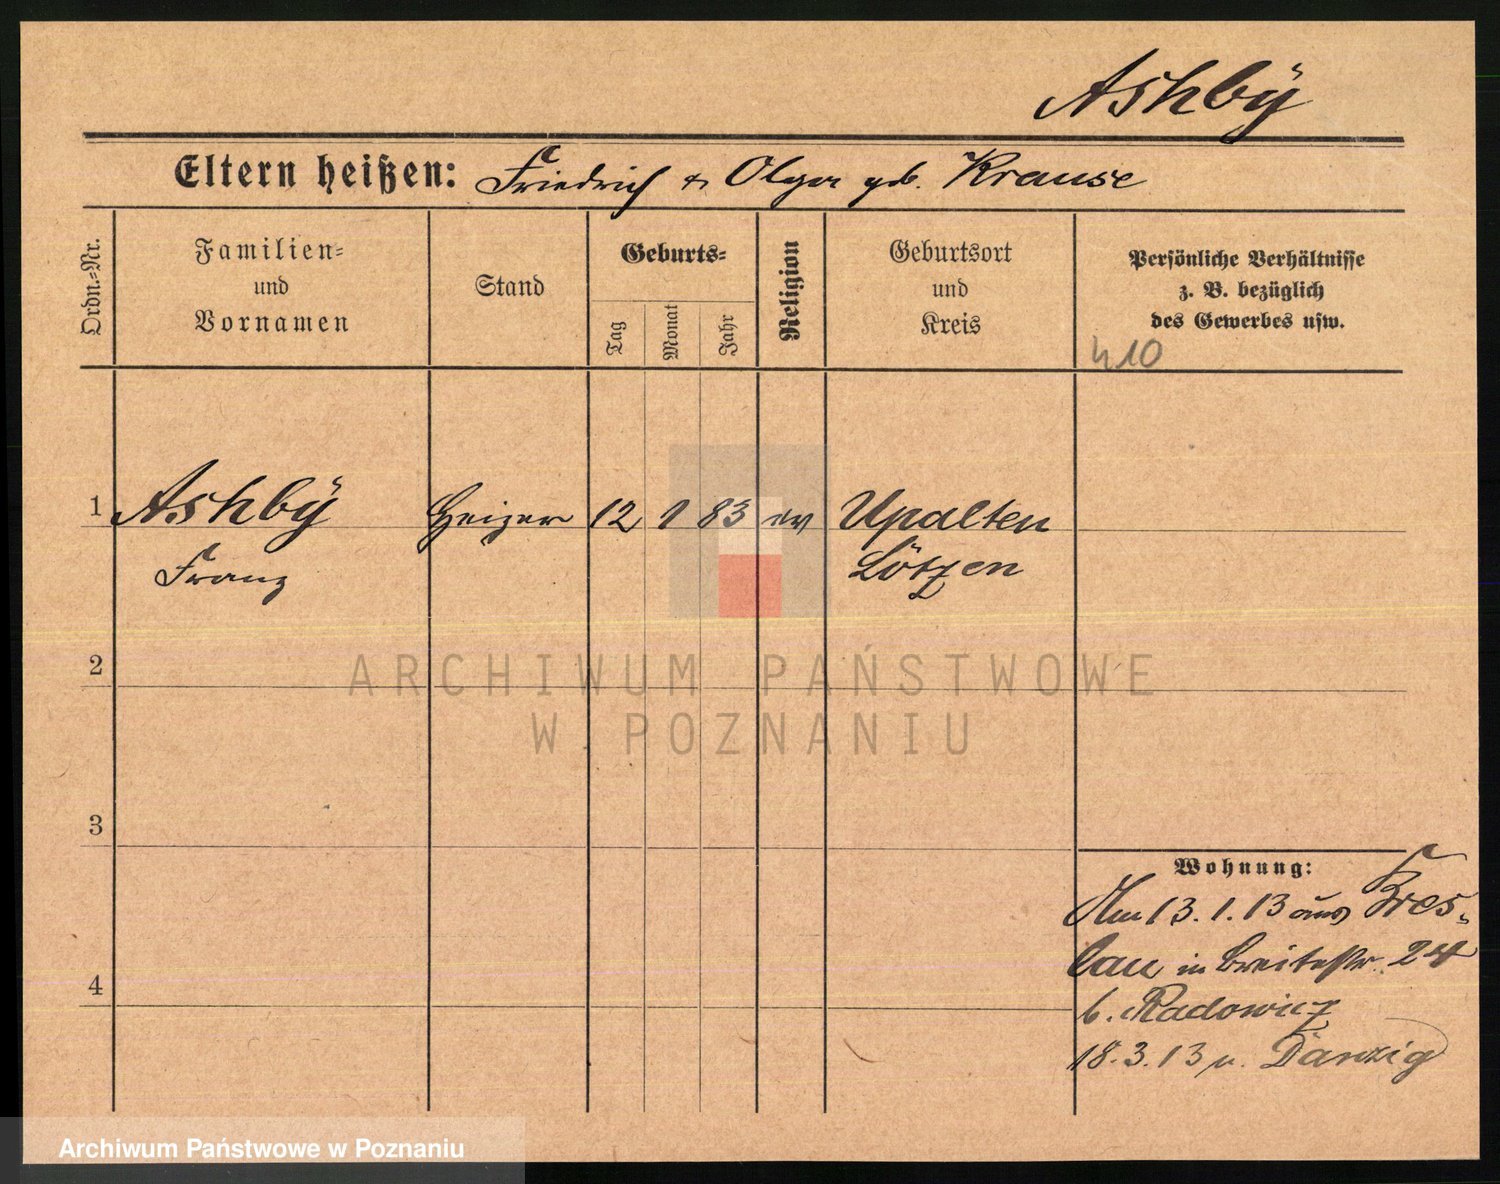 Ashbÿ
Eltern heißen: Friedrich & Olga geb. Krause
Ordn.=Nr.
Familien=
und
Vornamen
Stand
Geburts=
Tag
Monat
Jahr
Religion
Geburtsort
und
Kreis
Persönliche Verhältnisse
z. B. bezüglich
des Gewerbes usw.
410
1 Ashbÿ Heizer 12 1 83 ev Upalten
Franz Lötzen
2
ARCHIWUM PAŃSTWOWE
W POZNANIU
3
Wohnung:
Am 13.1.13 aus Bres-
lau in Breitestr. 24
4
b. Radowicz
18.3.13 n. Danzig
Archiwum Państwowe w Poznaniu